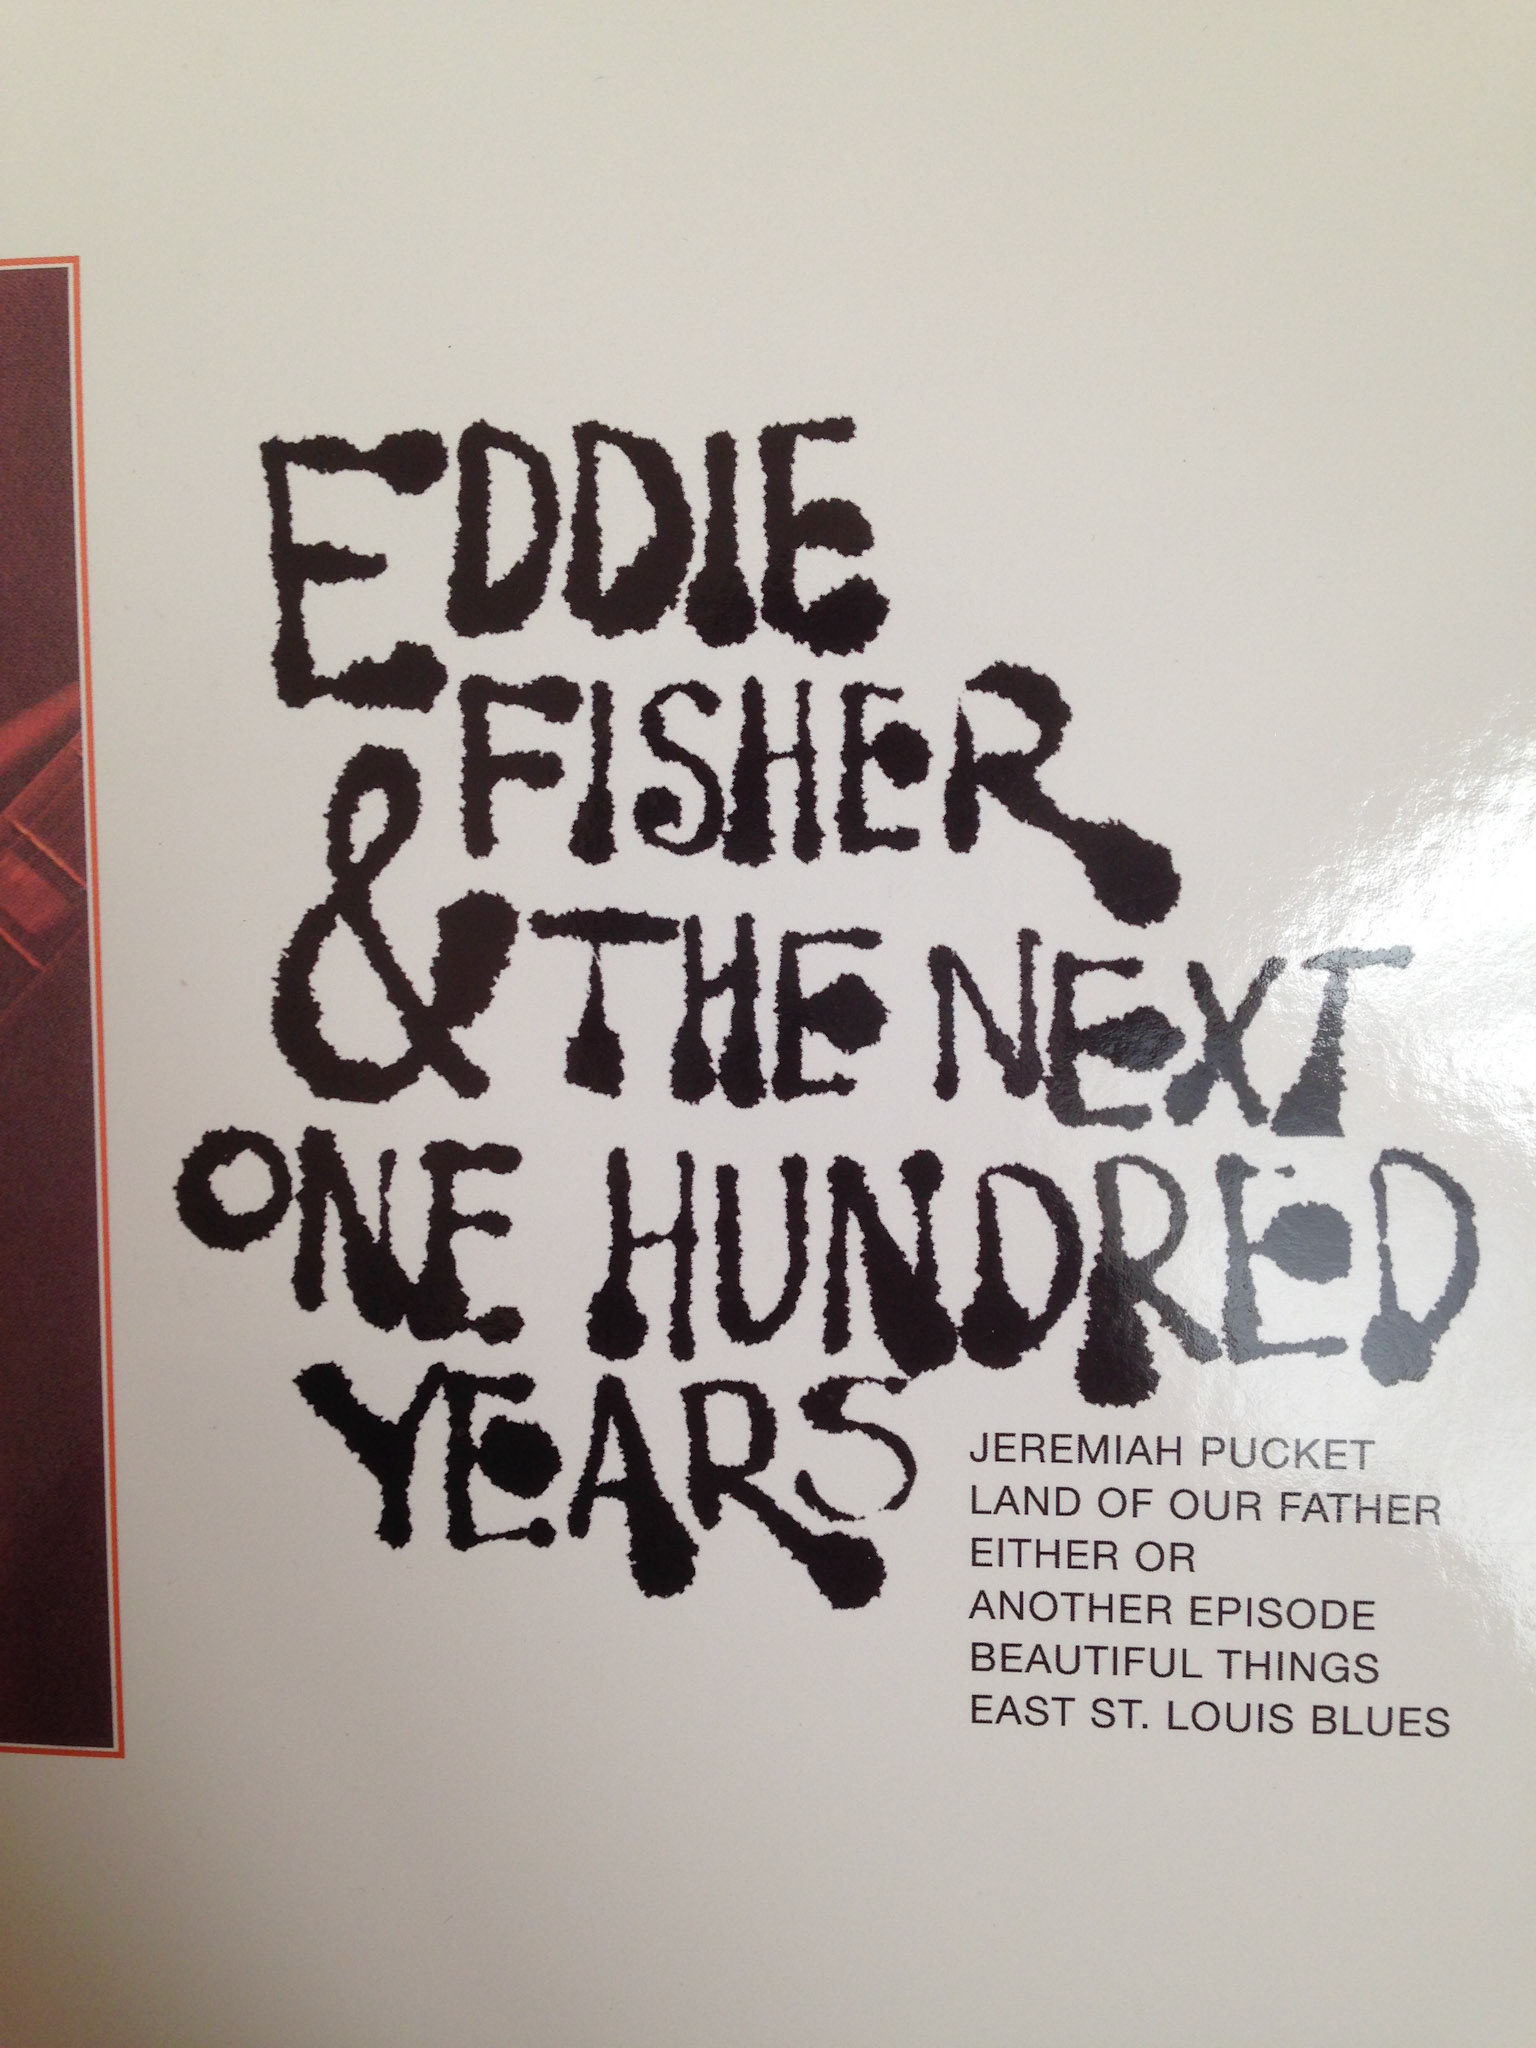 EDDIE
FISHER
& THE NEXT
ONE HUNDRED
YEARS
JEREMIAH PUCKET
LAND OF OUR FATHER
EITHER OR
ANOTHER EPISODE
BEAUTIFUL THINGS
EAST ST. LOUIS BLUES